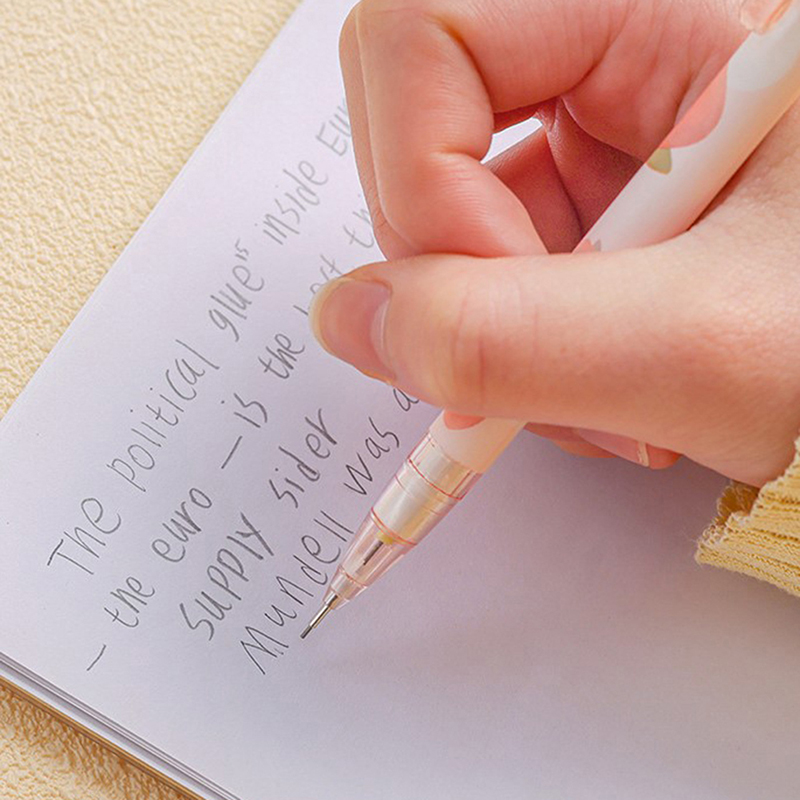 The political glue" inside
— the euro — is the
supply sider
Mundell was